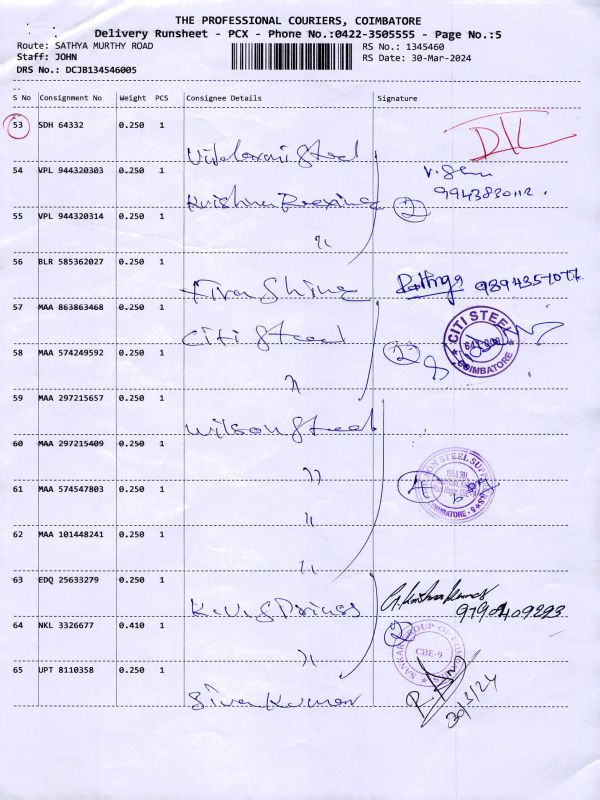 THE PROFESSIONAL COURIERS, COIMBATORE
Delivery Runsheet - PCX - Phone No.:0422-3505555 - Page No.:5
Route: SATHYA MURTHY ROAD
RS No.: 1345460
Staff: JOHN
RS Date: 30-Mar-2024
DRS No.: DCJB134546005
S No Consignment No Weight PCS Consignee Details Signature
53 SDH 64332 0.250 1
54 VPL 944320303 0.250 1 Krishna
9943830112.
2
55 VPL 944320314 0.250 1
56 BLR 585362027 0.250 1 Shine
57 MAA 863863468 0.250 1 Citi Steel
CITI STEEL
COIMBATORE
2
58 MAA 574249592 0.250 1
59 MAA 297215657 0.250 1 Wilson Steel
60 MAA 297215409 0.250 1
61 MAA 574547803 0.250 1
COIMBATORE - 9
62 MAA 101448241 0.250 1
63 EDQ 25633279 0.250 1
9790409293
64 NKL 3326677 0.410 1
2
CBE-9
65 UPT 8110358 0.250 1 Siva Kumar
30/3/24